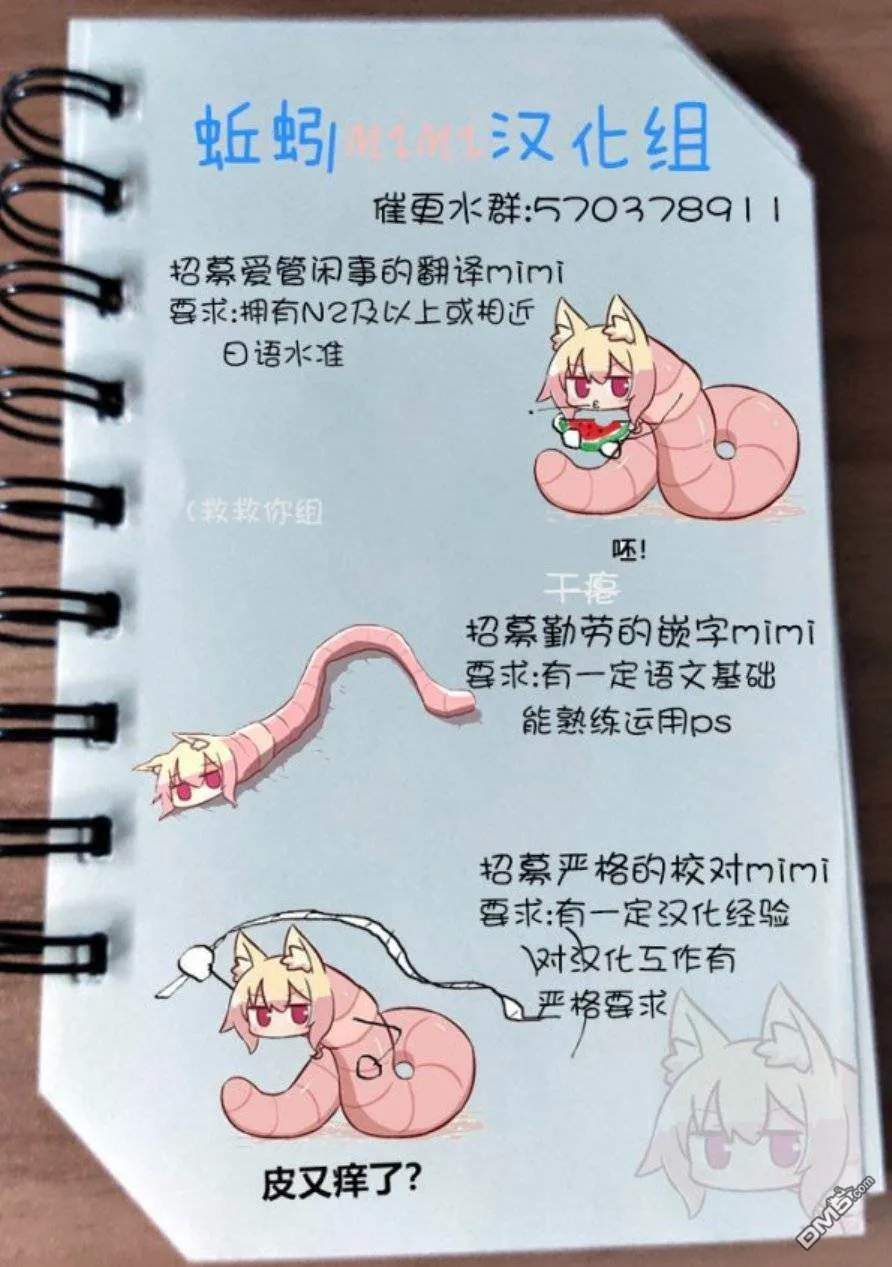 蚯蚓mimi汉化组
催更水群:570378911
招募爱管闲事的翻译mimi
要求:拥有N2及以上或相近
日语水准
(救救你组
呸!
干瘪
招募勤劳的嵌字mimi
要求:有一定语文基础
能熟练运用ps
招募严格的校对mimi
要求:有一定汉化经验
对汉化工作有
严格要求
皮又痒了?
DM5.com